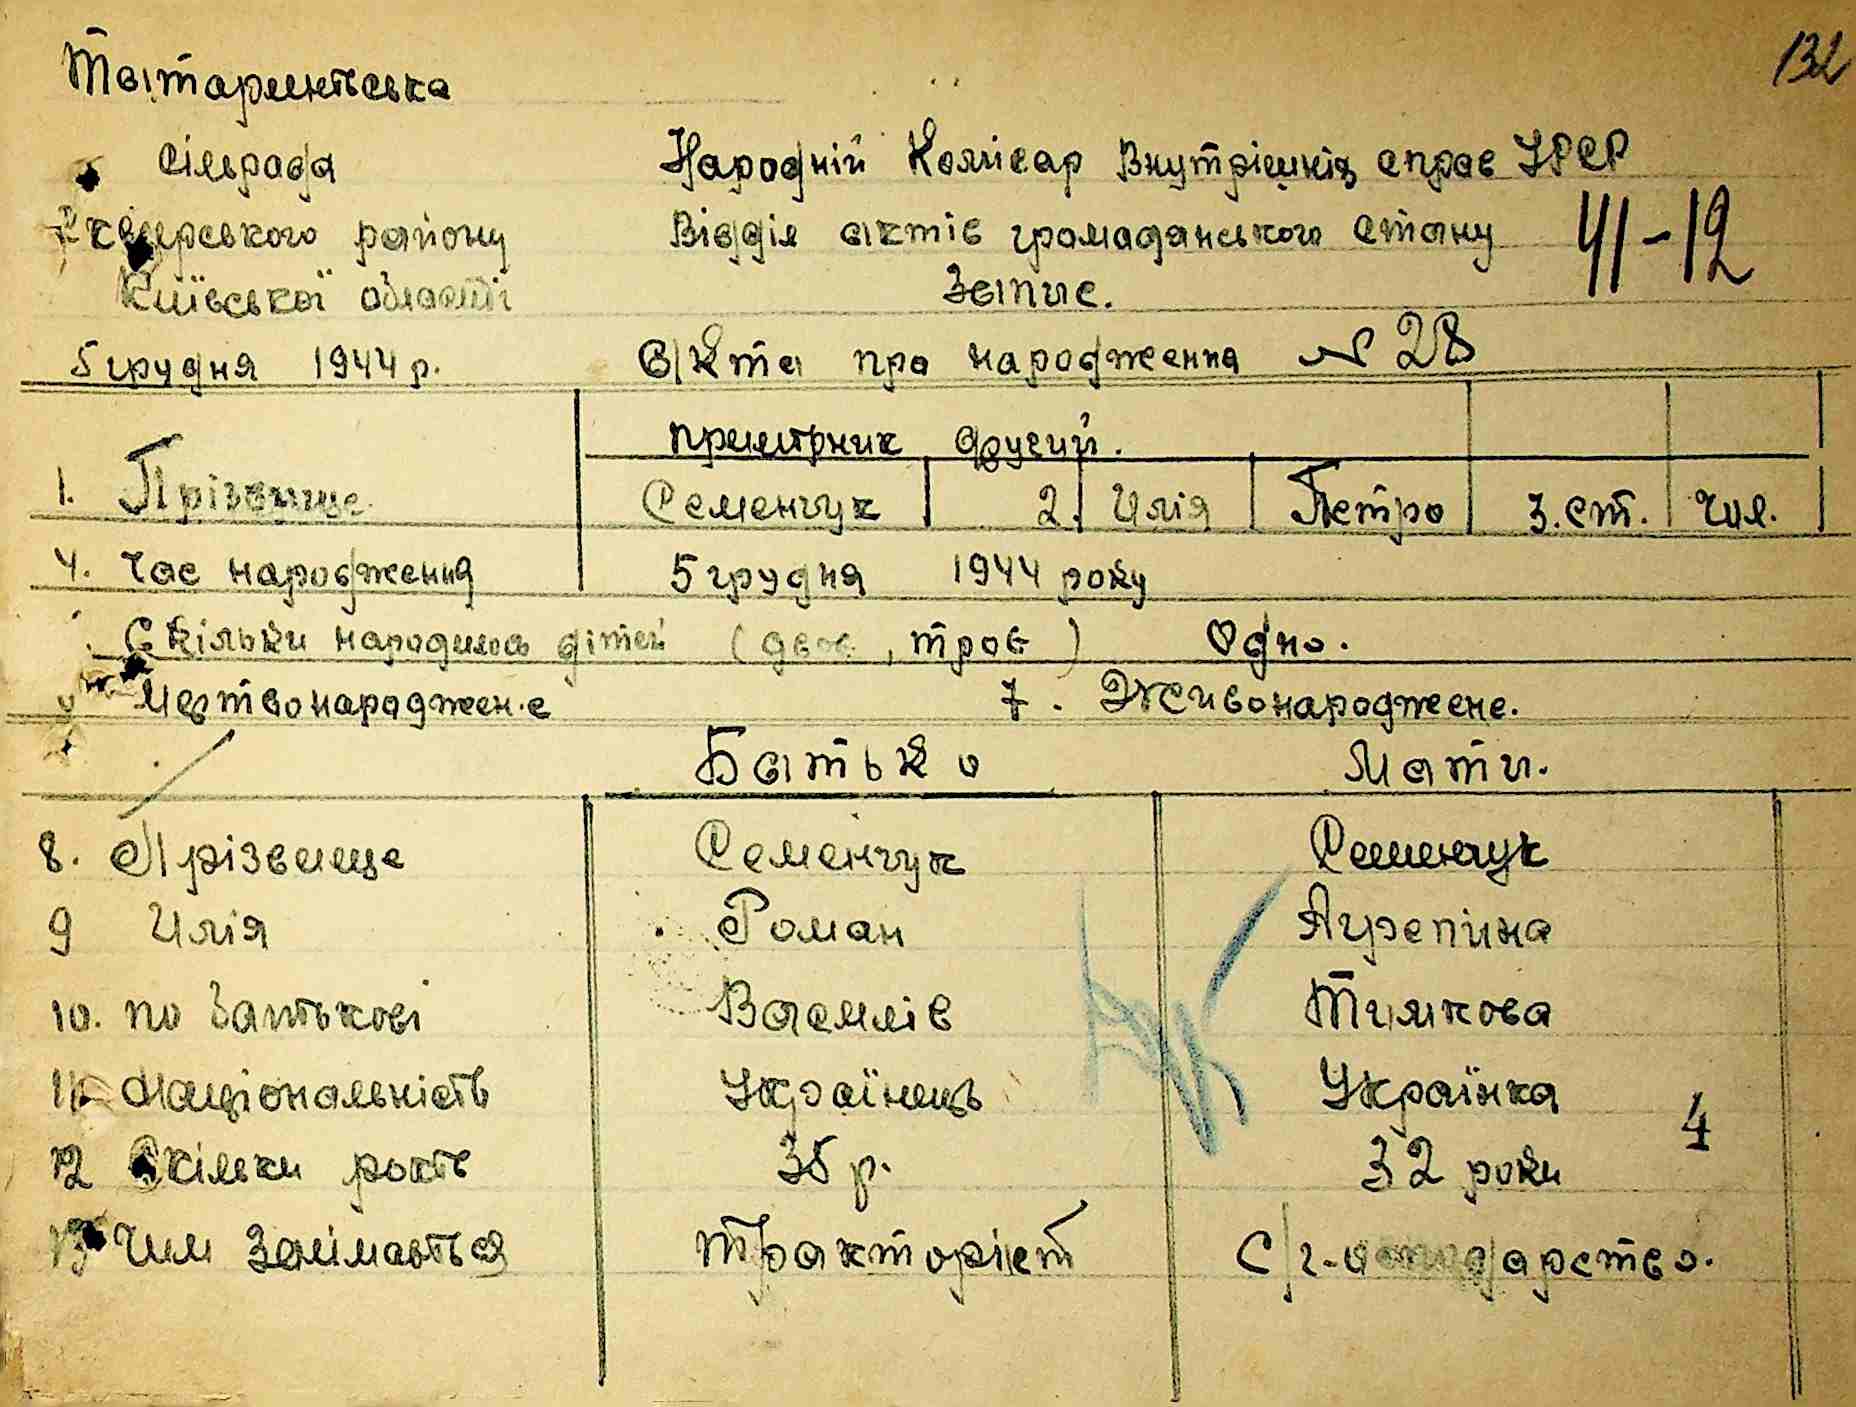 132
Татаринівська
сільрада
Народній Комісар Внутрішніх справ УРСР
Сквирського району
Відділ актів громадянського стану 41-12
Київської області
Запис.
5 грудня 1944 р. Акта про народження № 28
примірник другий.
1. Прізвище Семенчук 2. Имя Петро 3. ст. чол.
4. Час народження 5 грудня 1944 року
Скільки народилось дітей (двоє, троє) Одно.
Мертвонароджене 7. Живонароджене.
Батько Мати.
8. Прізвище Семенчук Семенчук
9 Имя Роман Агрепіна
10. по Батькові Василів Тимкова
11. Національність Українець Українка
4
12 Скільки років 35 р. 32 роки
13 Чим Займається Тракторіст С/г-осподарство.